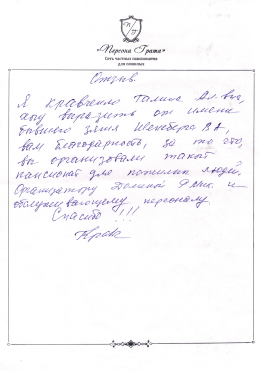 «Персона Грата»
Сеть частных пансионатов
для пожилых
Отзыв
Я Кравченко Галина Ал-вна,
хочу выразить от имени
бывшего зятя В.А,
вам благодарность, за то что,
вы организовали такой
пансионат для пожилых людей.
Организатору и
обслуживающему персоналу.
Спасибо !!!